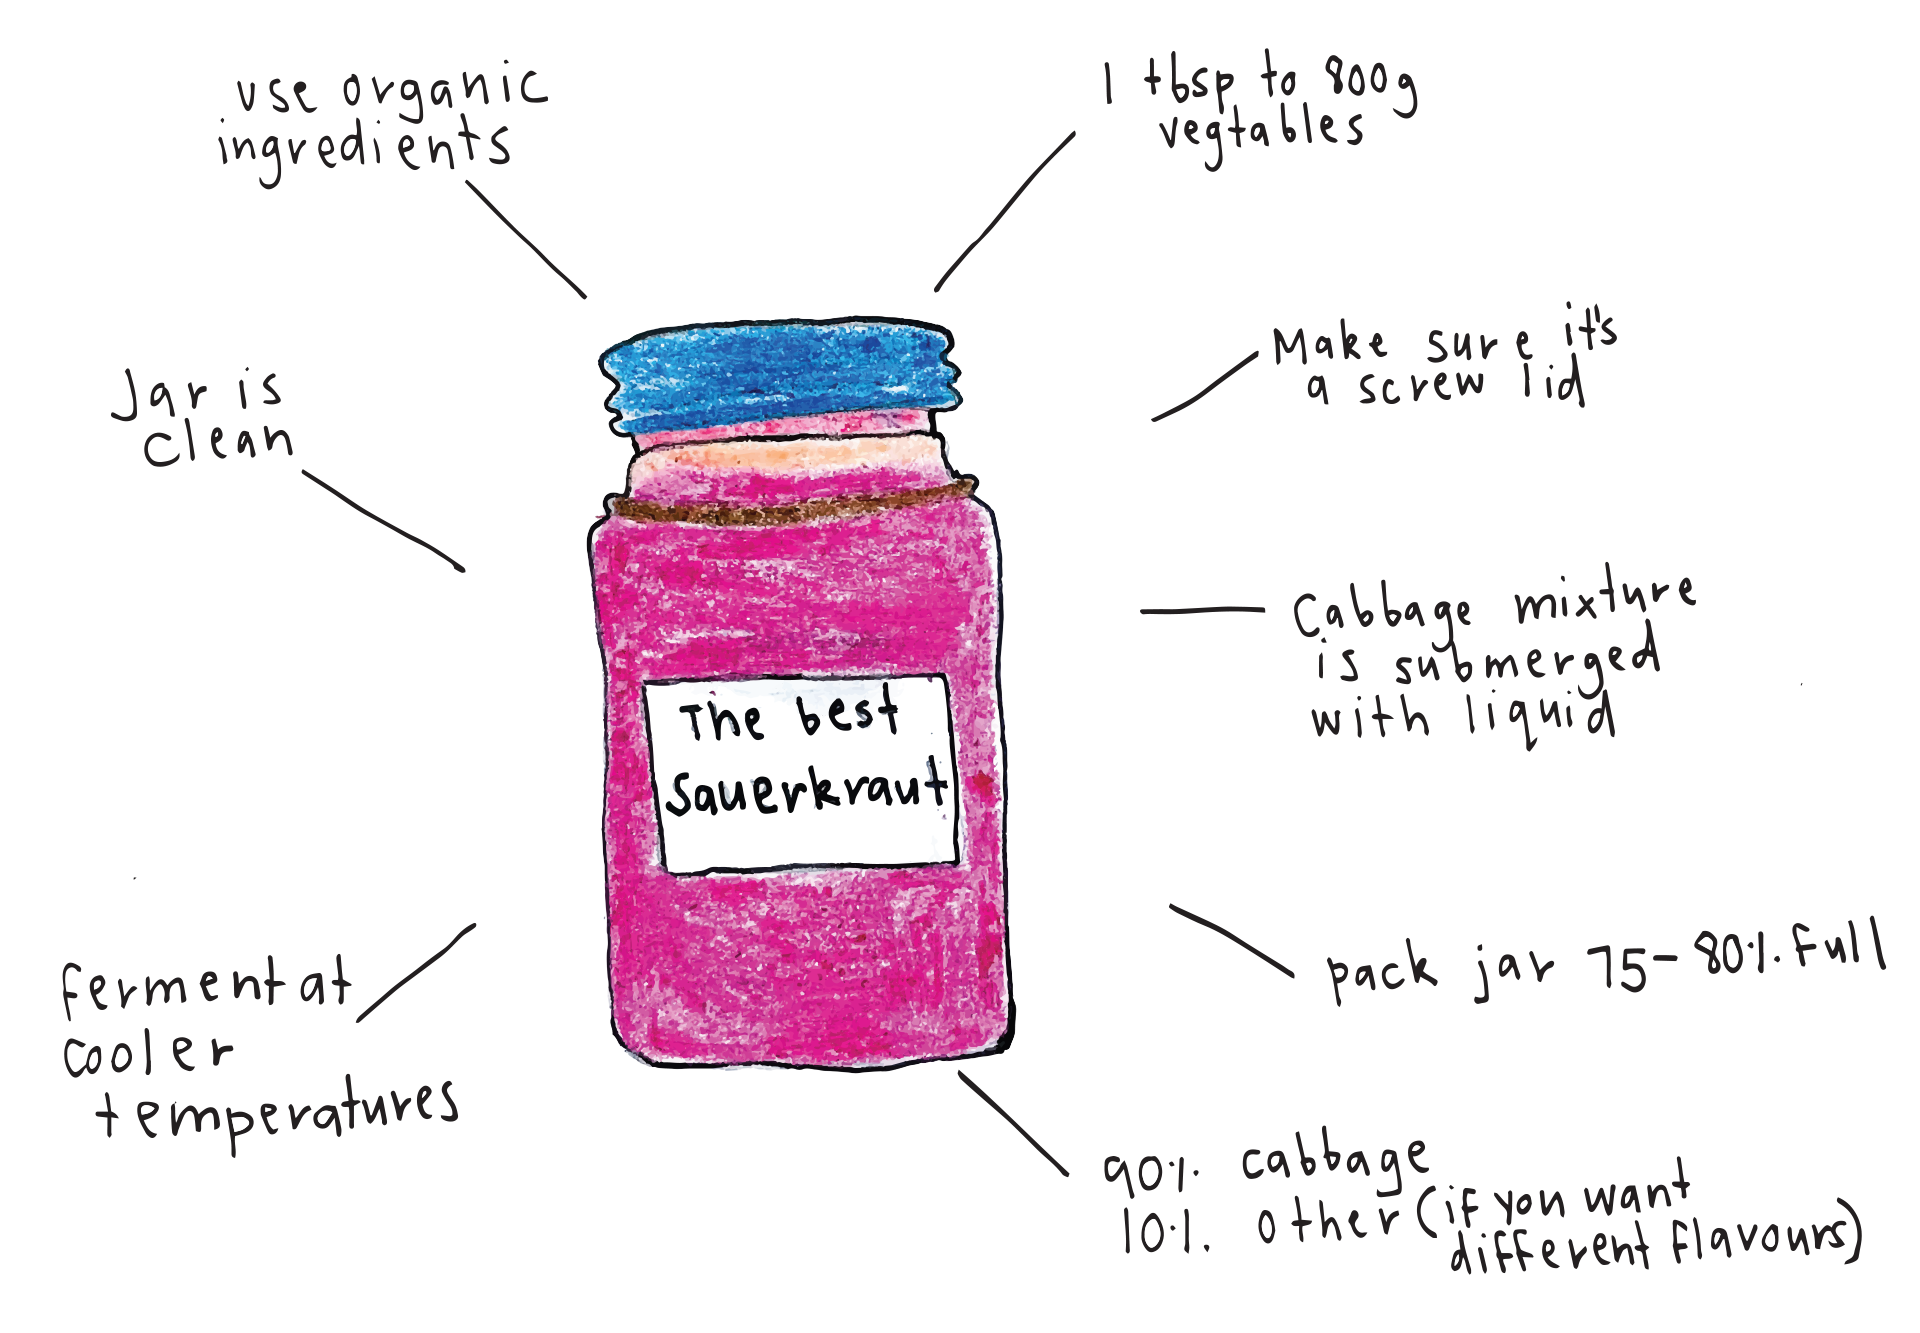 use organic
ingredients
1 tbsp to 800g
vegtables
Jar is
clean
Make sure it's
a screw lid
Cabbage mixture
is submerged
with liquid
The best
Sauerkraut
ferment at
cooler
temperatures
pack jar 75-80% full
90% cabbage
10% other (if you want
different flavours)